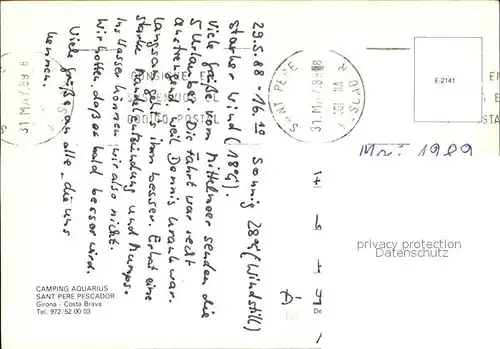 29.5.88 - 16.10 Sonnig 28°C (Windstill)
Starker Wind (18°C).
Viele Grüße vom Mittelmeer senden die
5 Urlauber. Die Fahrt war recht
anstrengend weil Dennis krank war.
Langsam geht's ihm besser. Er hat eine
starke Mandelentzündung und Mumps.
Ins Wasser können wir also nicht.
Wir hoffen, daß es bald besser wird.
Viele Grüße an alle, die uns
kennen.
SANT PERE
CODIGO POSTAL
E-2141
Mai 1989
privacy protection
Datenschutz
De
CAMPING AQUARIUS
SANT PERE PESCADOR
Girona - Costa Brava
Tel. 972/52 00 03